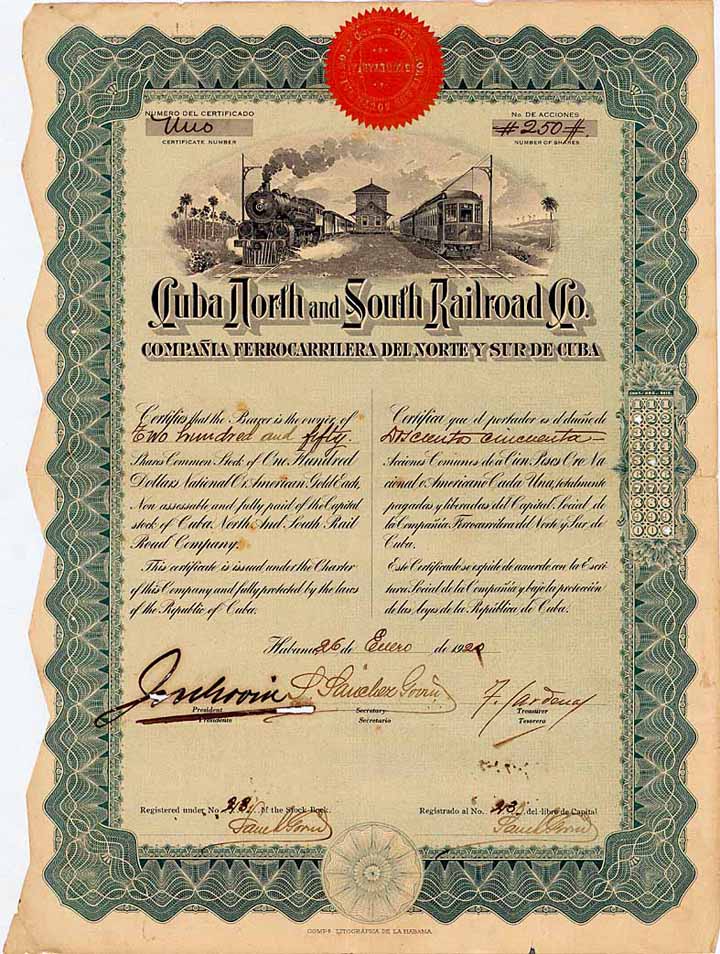 NUMERO DEL CERTIFICADO
Uno
CERTIFICATE NUMBER
No. DE ACCIONES
#250#.
NUMBER OF SHARES
Cuba North and South Railroad Co.
COMPAÑIA FERROCARRILERA DEL NORTE Y SUR DE CUBA
Certifies that the Bearer is the owner of
Two hundred and fifty.
Shares Common Stock of One Hundred
Dollars National Or American Gold Each,
Non assessable and fully paid of the Capital
stock of Cuba North And South Rail
Road Company.
This certificate is issued under the Charter
of this Company and fully protected by the laws
of the Republic of Cuba.
Certifica que el portador es el dueño de
Disciento cincuenta
Acciones Comunes de a Cien Pesos Oro Na
cional o Americano Cada Una, totalmente
pagadas y liberadas del Capital Social de
la Compañía Ferrocarrilera del Norte y Sur de
Cuba.
Este Certificado se expide de acuerdo con la Escri
tura Social de la Compañía y bajo la protección
de las leyes de la República de Cuba.
Habana 26 de Enero de 192
President
Presidente
L. Sánchez Govín
Secretary
Secretario
F. Cardenas
Treasurer
Tesorero
Registered under No of the Stock Book.
Registrado al No. del libro de Capital
COMPª LITOGRAFICA DE LA HABANA.